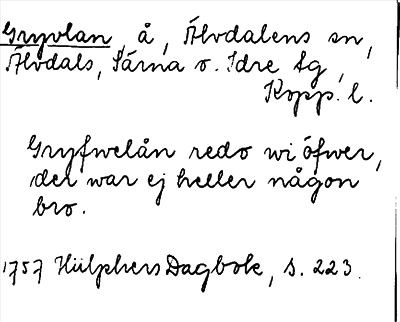 Gryvlan, å, Älvdalens sn,
Älvdals, Särna o. Idre tg,
Kopp. l.
Gryfwelån redo wi öfwer,
der war ej heller någon
bro.
1757 Hülphers Dagbok, s. 223.